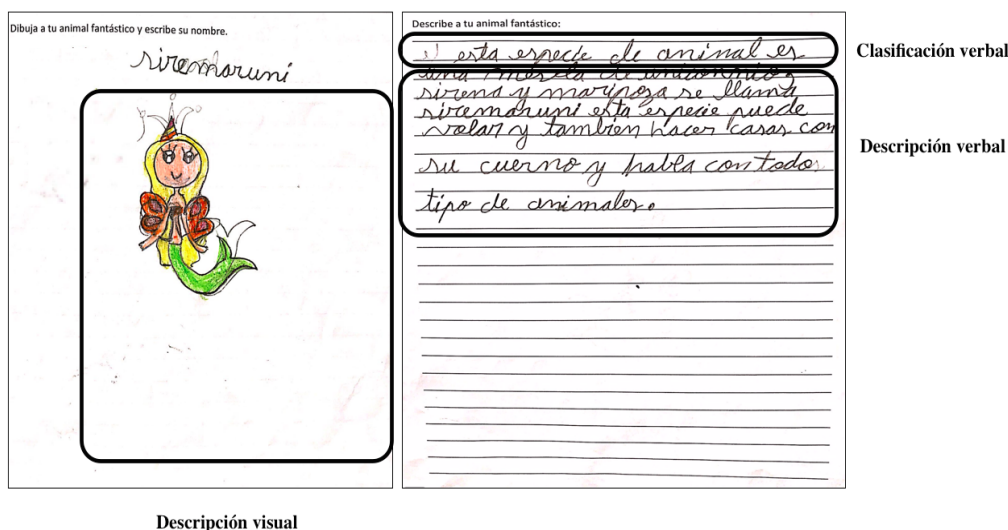 Dibuja a tu animal fantástico y escribe su nombre.
siremaruni
Describe a tu animal fantástico:
esta especie de animal es
una mescla de unicornio
sirena y maripoza se llama
siremaruni esta especie puede
volar y tambien hacer casas con
su cuerno y habla con todos
tipo de animales.
Clasificación verbal
Descripción verbal
Descripción visual